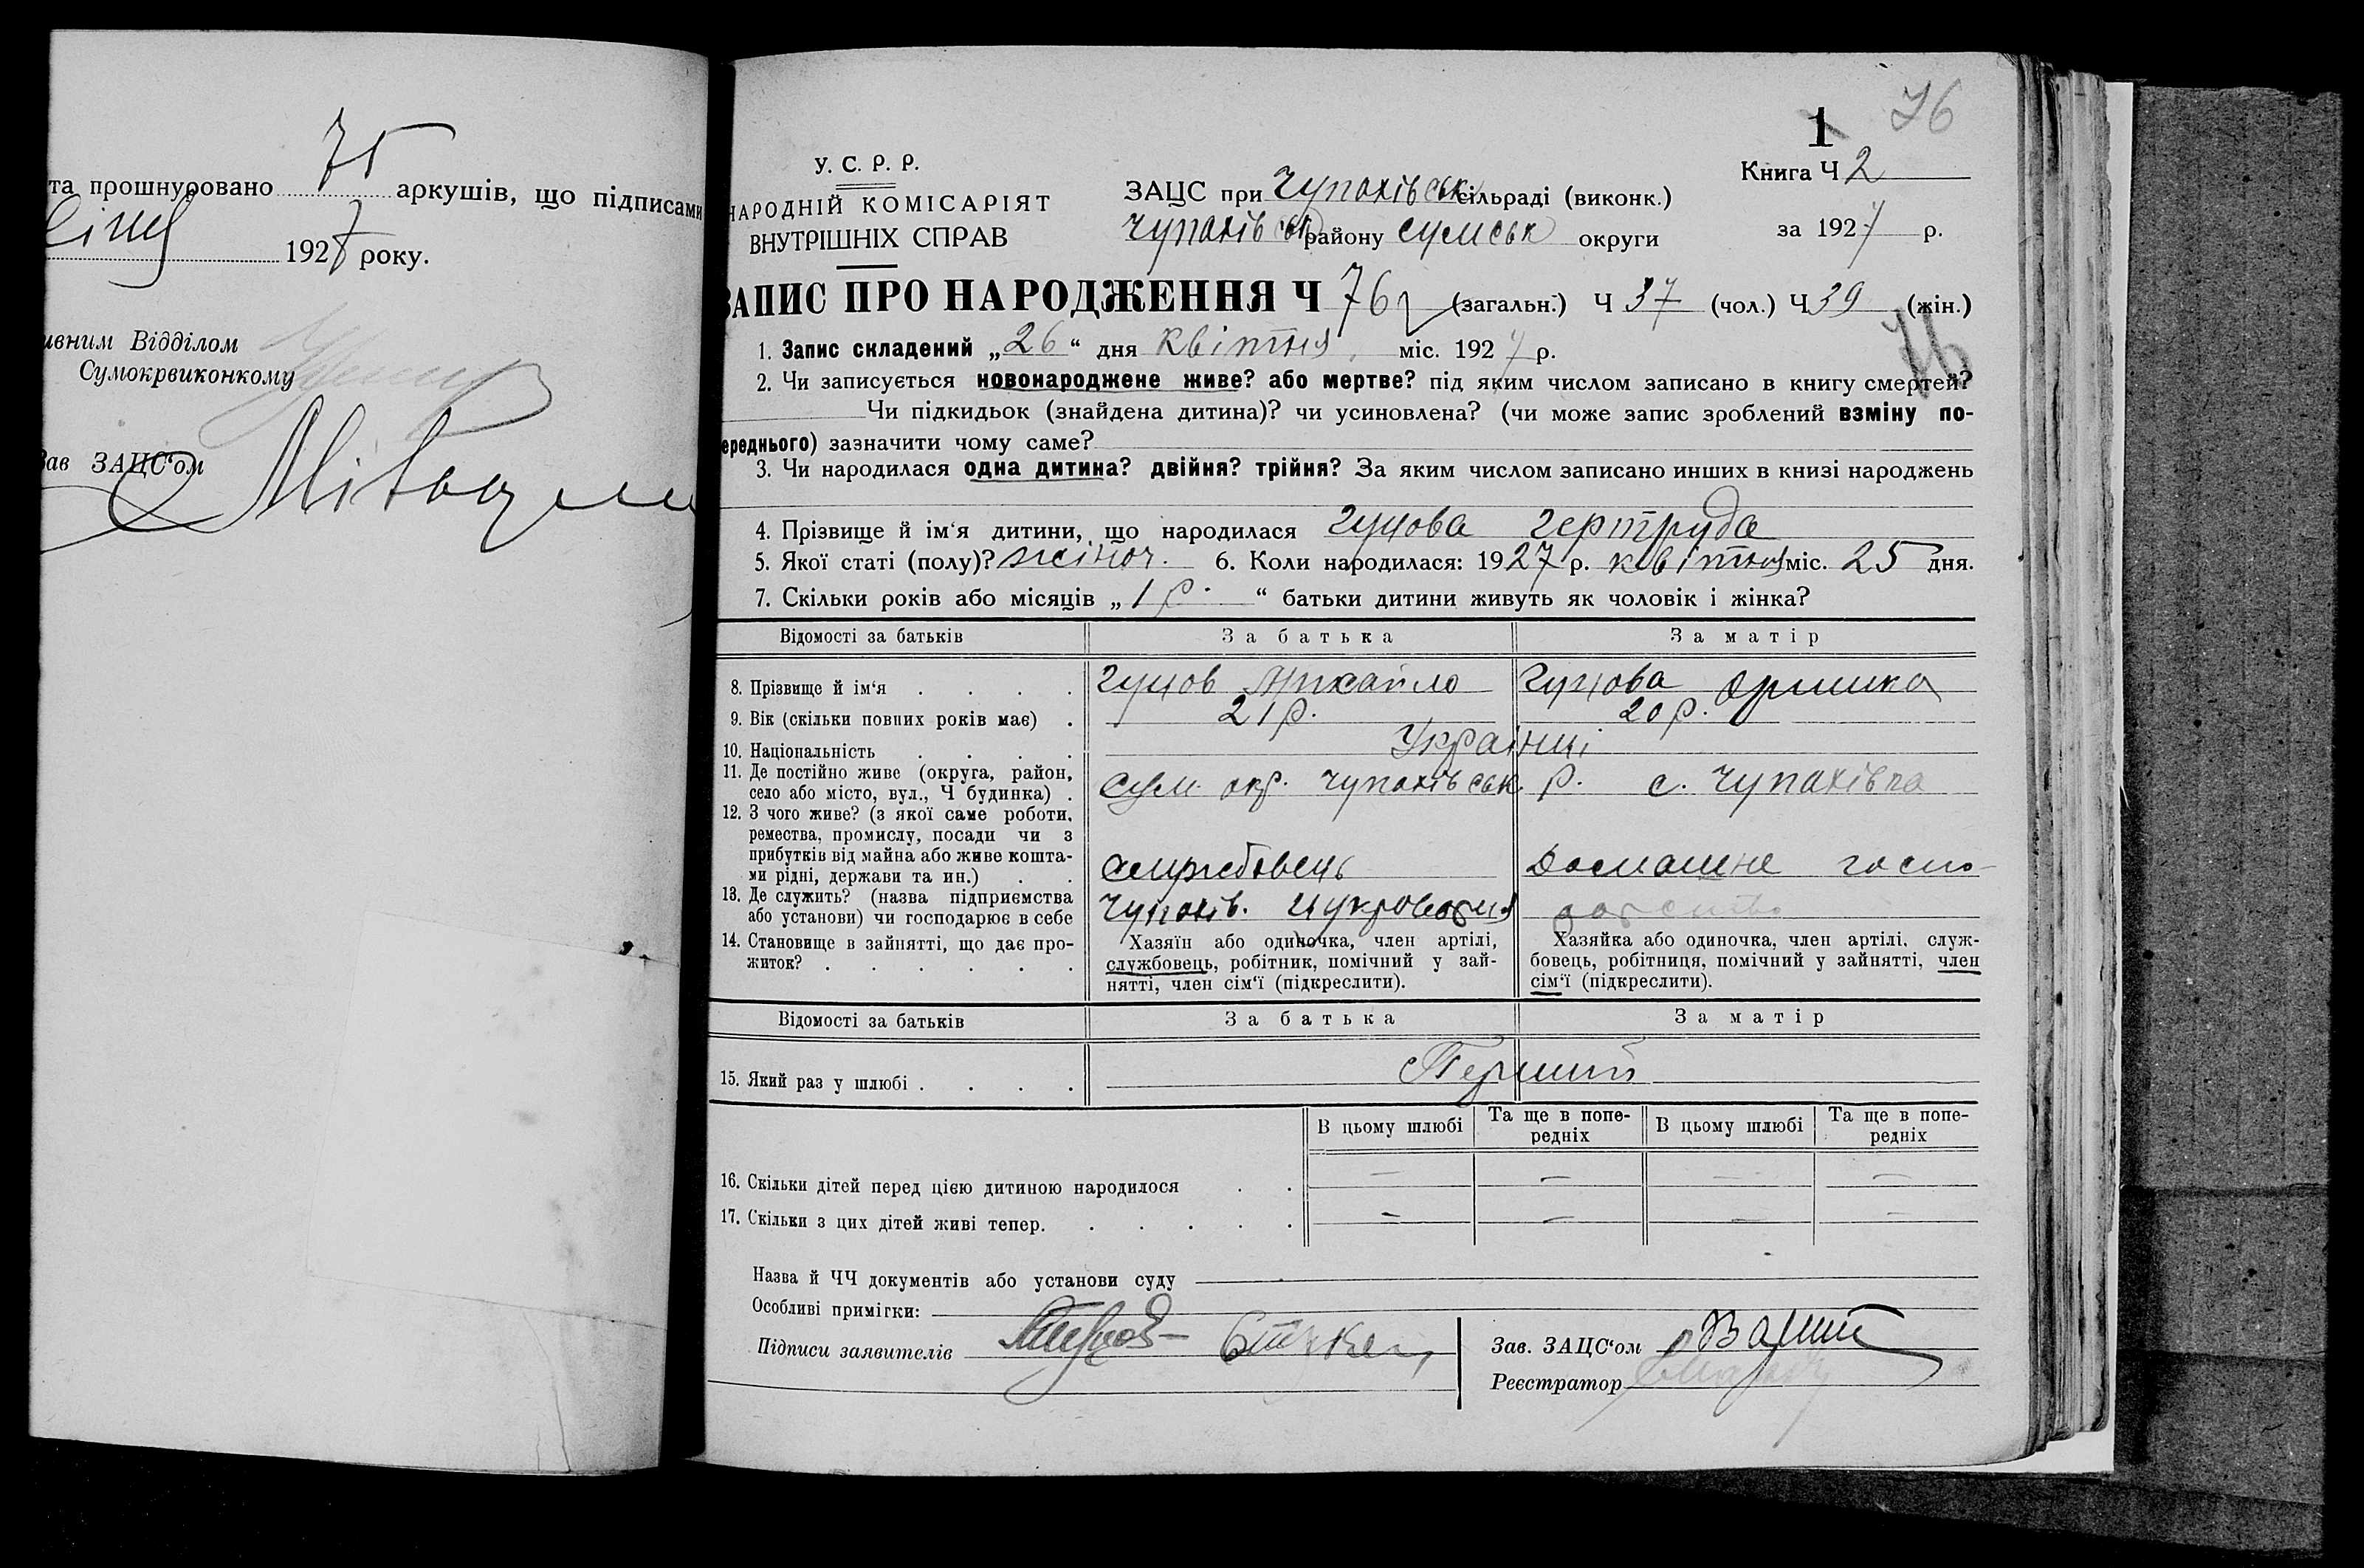 та прошнуровано 75 аркушів, що підписами
192 року.
ивним Відділом
Сумокрвиконкому
Зав ЗАЦС'ом
1 76
Книга Ч 2
У. С. Р. Р.
НАРОДНІЙ КОМІСАРІЯТ
ВНУТРІШНІХ СПРАВ
ЗАЦС при Чупахівськ сільраді (виконк.)
Чупахівськ району Сумськ округи
за 1927 р.
ЗАПИС ПРО НАРОДЖЕННЯ Ч 76 (загальн.) Ч 37 (чол.) Ч 39 (жін.)
76
1. Запис складений „26“ дня квітня міс. 1927 р.
2. Чи записується новонароджене живе? або мертве? під яким числом записано в книгу смертей?
Чи підкидьок (знайдена дитина)? чи усиновлена? (чи може запис зроблений взміну по-
ереднього) зазначити чому саме?
3. Чи народилася одна дитина? двійня? трійня? За яким числом записано инших в книзі народжень
4. Прізвище й ім'я дитини, що народилася Гунова Гертруда
5. Якої статі (полу)? жіноч. 6. Коли народилася: 1927 р. квітня міс. 25 дня.
7. Скільки років або місяців „1 р.“ батьки дитини живуть як чоловік і жінка?
Відомості за батьків За батька За матір
8. Прізвище й ім'я . . . . Гунов Михайло Гунова Оришка
9. Вік (скільки повних років має) . 21 р. 20 р.
10. Національність . . . . Українці
11. Де постійно живе (округа, район,
село або місто, вул., Ч будинка) . Сум. окр. Чупахівськ р. с. Чупахівка
12. З чого живе? (з якої саме роботи,
ремества, промислу, посади чи з
прибутків від майна або живе кошта-
ми рідні, держави та ин.) . . службовець Домашне госпо-
13. Де служить? (назва підприємства
або установи) чи господарює в себе Чупахів. цукроварня дарство
14. Становище в зайнятті, що дає про-
житок? . . . . . .
Хазяїн або одиночка, член артілі,
службовець, робітник, помічний у зай-
нятті, член сім'ї (підкреслити).
Хазяйка або одиночка, член артілі, служ-
бовець, робітниця, помічний у зайнятті, член
сім'ї (підкреслити).
Відомості за батьків За батька За матір
15. Який раз у шлюбі . . . . Перший
В цьому шлюбі Та ще в попе-
редніх В цьому шлюбі Та ще в попе-
редніх
16. Скільки дітей перед цією дитиною народилося . . — — — —
17. Скільки з цих дітей живі тепер. . . . . . — — — —
Назва й ЧЧ документів або установи суду
Особливі примітки:
Підписи заявителів
Зав. ЗАЦС'ом
Реєстратор